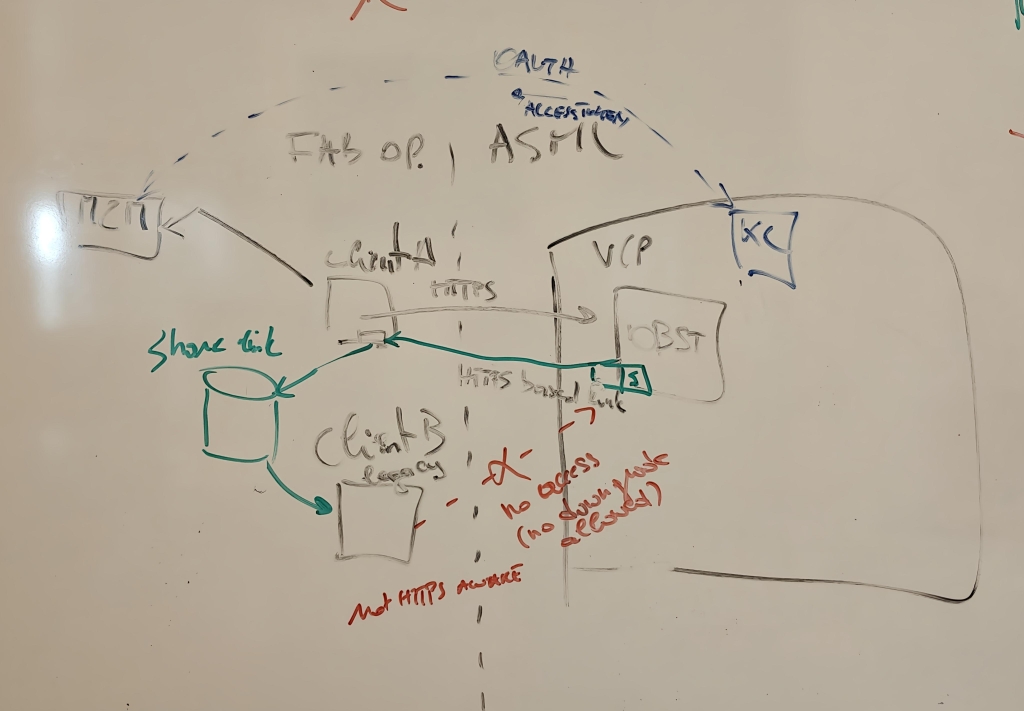 OAUTH
ACCESSTOKEN
FAB OP.
ASML
M2M
KC
Client A
VCP
HTTPS
OBST
Share link
HTTPS based link
S
Client B
legacy
no access
(no downgrade
allowed)
Not HTTPS AWARE